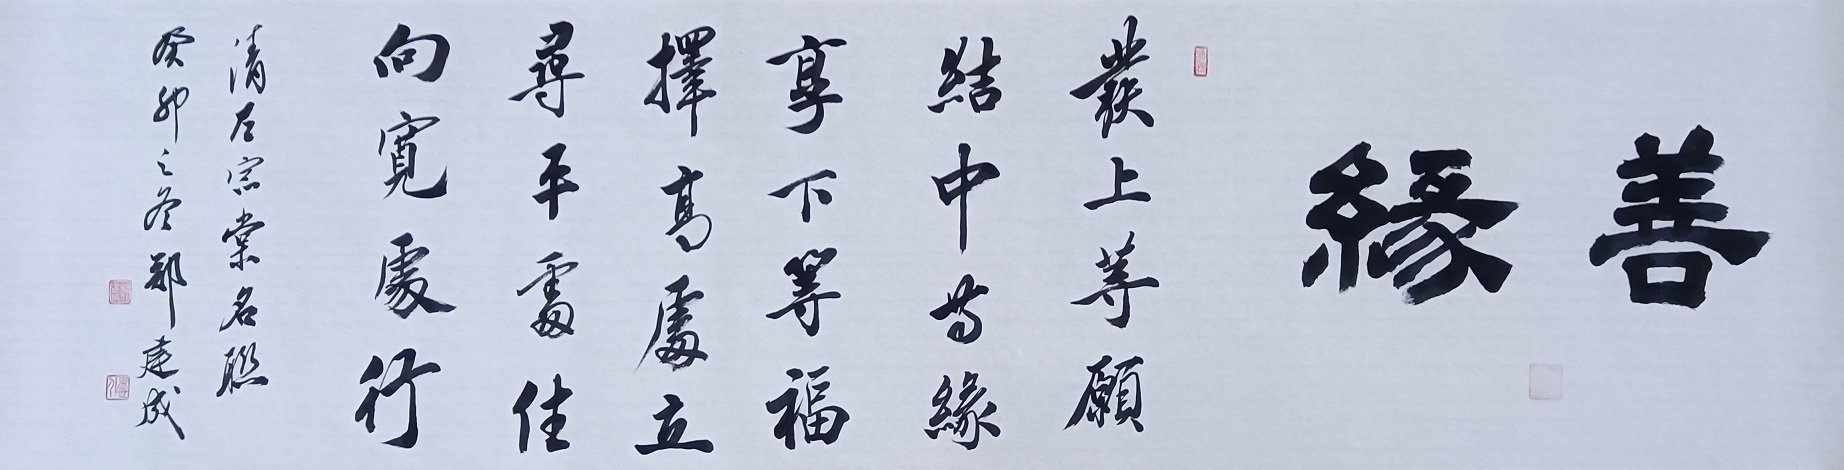 善緣
發上等願
結中等緣
享下等福
擇高處立
尋平處住
向寬處行
清左宗棠名聯
癸卯之冬鄭建成